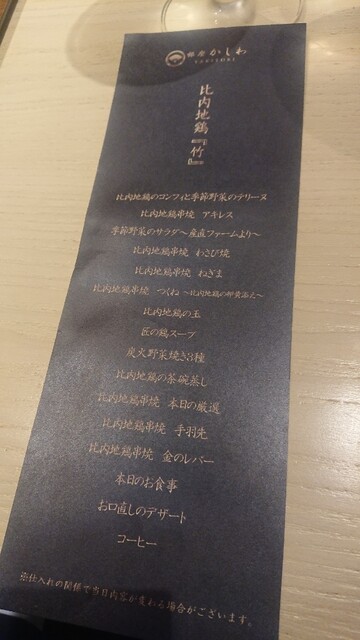 銀座 かしわ
YAKITORI
比内地鶏『竹』
比内地鶏のコンフィと季節野菜のテリーヌ
比内地鶏串焼 アキレス
季節野菜のサラダ～産直ファームより～
比内地鶏串焼 わさび焼
比内地鶏串焼 ねぎま
比内地鶏串焼 つくね ～比内地鶏の卵黄添え～
比内地鶏の玉
匠の鶏スープ
炭火野菜焼き3種
比内地鶏の茶碗蒸し
比内地鶏串焼 本日の厳選
比内地鶏串焼 手羽先
比内地鶏串焼 金のレバー
本日のお食事
お口直しのデザート
コーヒー
※仕入れの関係で当日内容が変わる場合がございます。